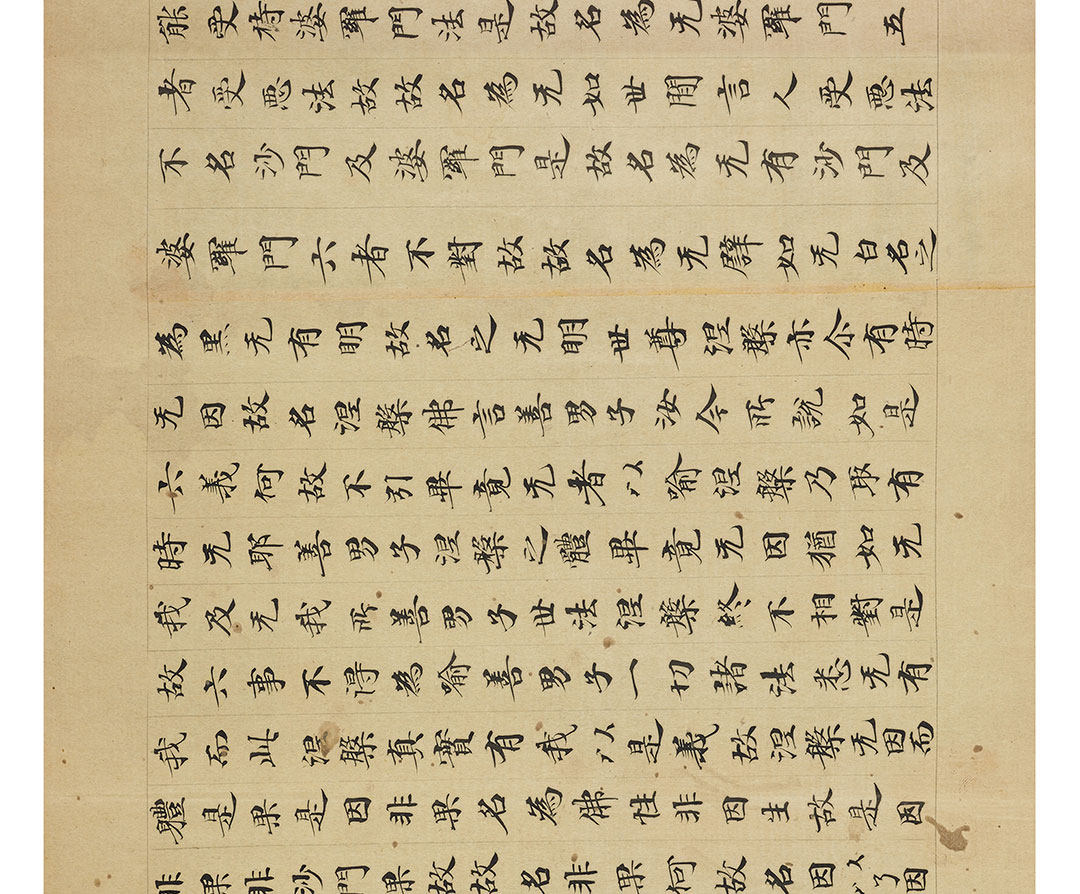 能受持婆羅門法是故名為无婆羅門五
者受悪法故故名為无如世間言人受悪法
不名沙門及婆羅門是故名為无有沙門及
婆羅門六者不對故故名為无譬如无白名之
為黑无有明故名之无明世尊涅槃亦尒有時
无因故名涅槃佛言善男子汝今所說如是
六義何故不引畢竟无者以喻涅槃乃取有
時无耶善男子涅槃之體畢竟无因猶如无
我及无我所善男子世法涅槃終不相對是
故六事不得為喻善男子一切諸法悉无有
我而此涅槃真實有我以是義故涅槃无因而
體是果是因非果名為佛性非因生故是因
非果非沙門果故故名非果何故名因以了因